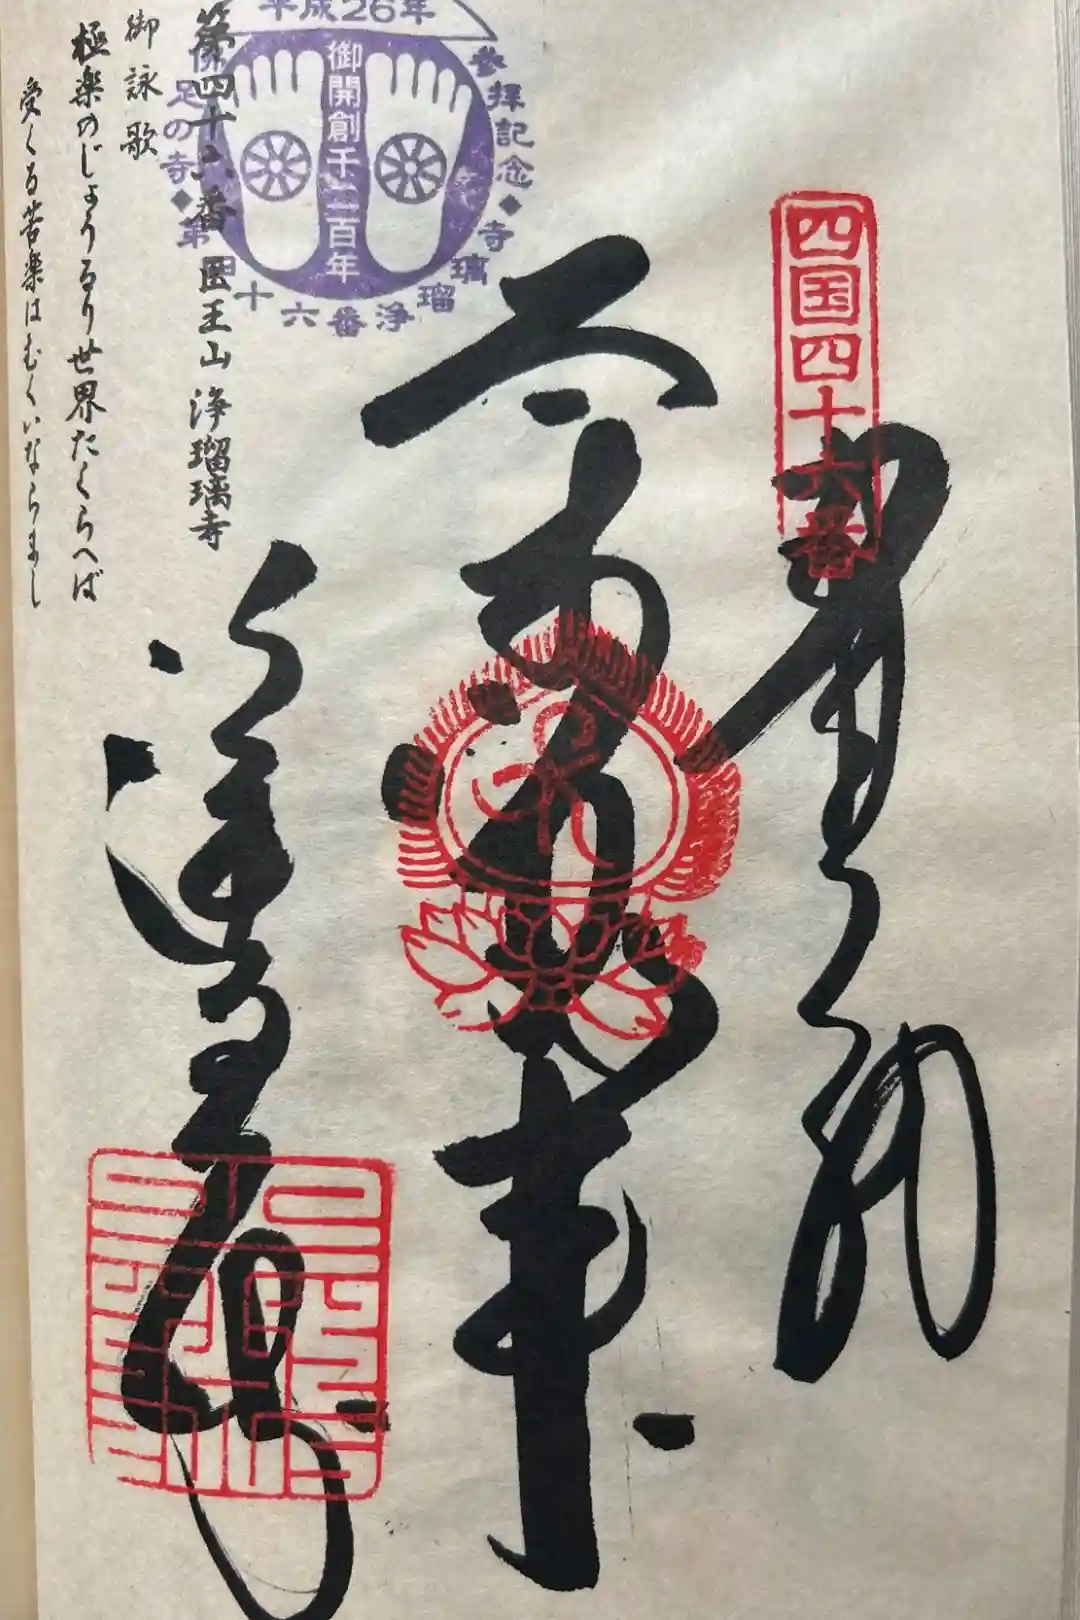 四国四十六番
奉納
平成26年
参拝記念◆寺
御開創千二百年
足の寺◆第四十六番浄瑠璃
第四十六番 医王山 浄瑠璃寺
御詠歌
極楽のじょうるり世界たくらへば
受くる苦楽はむくいならまし
浄瑠璃寺